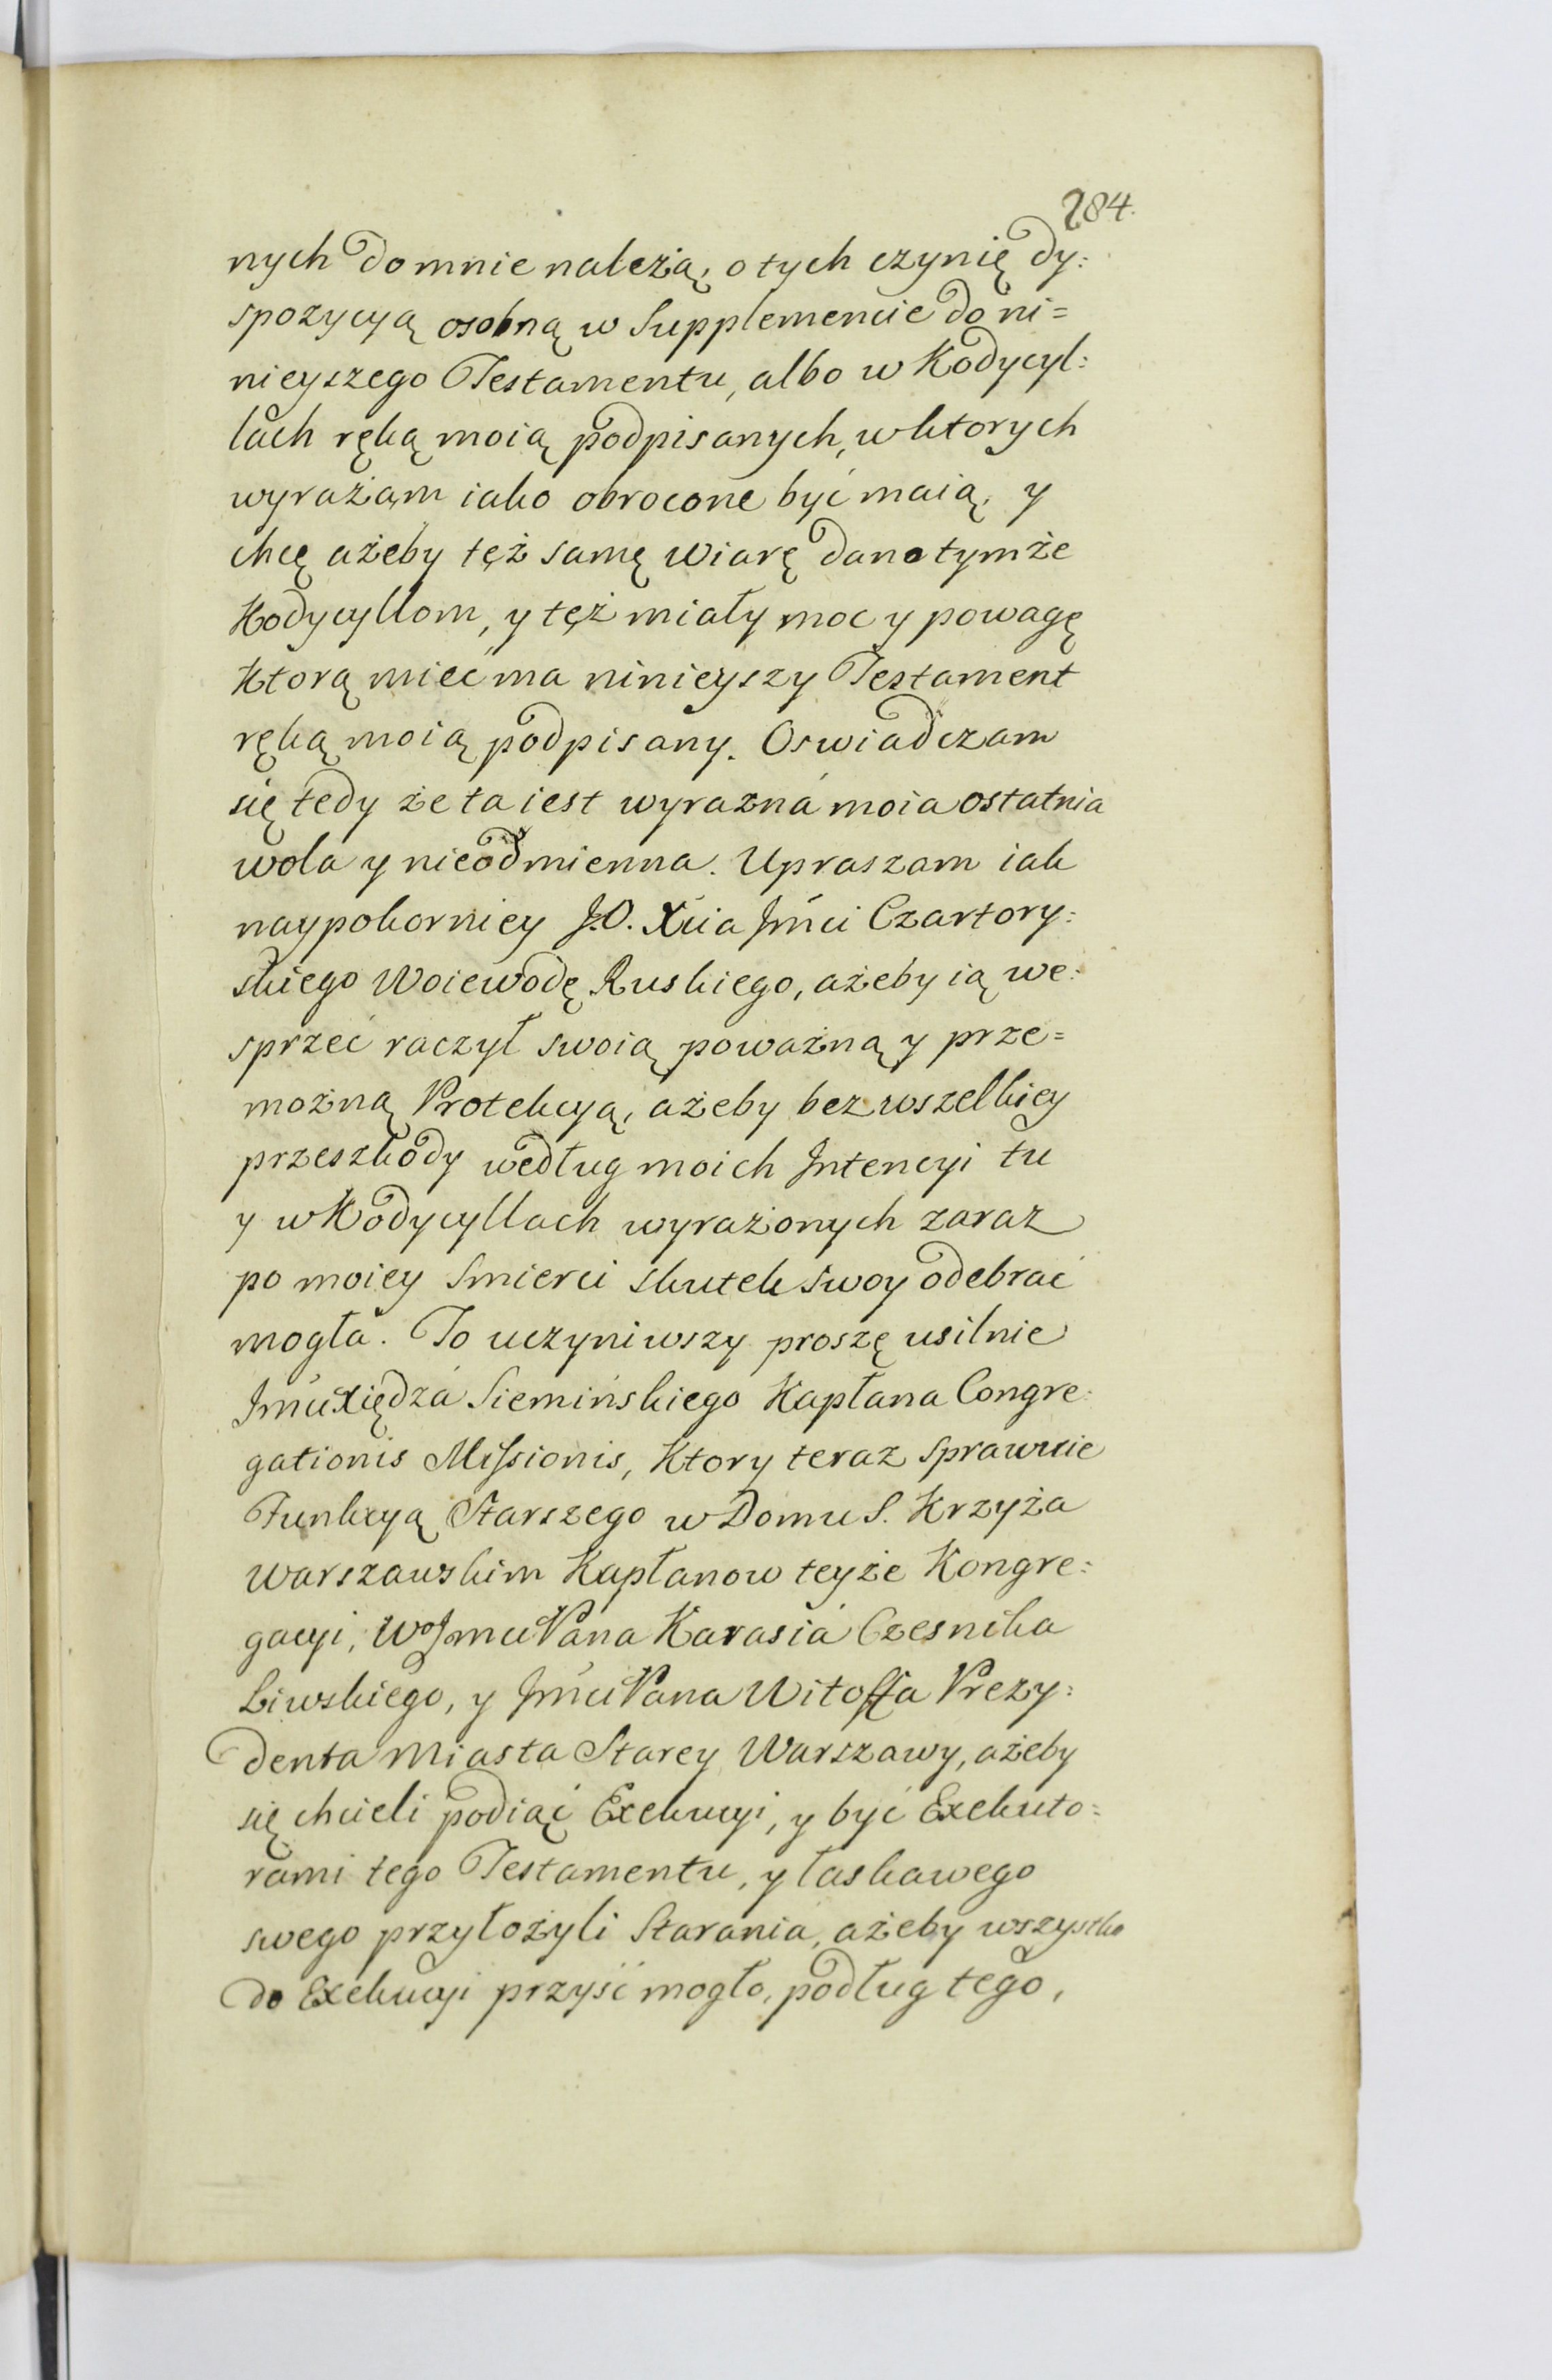 284.
nych do mnie należą, o tych czynię dy:
spozycyą osobną w Supplemencie do ni=
nieyszego Testamentu, albo w Kodycyl:
lach ręką moią podpisanych, w ktorych
wyrażam iako obrocone być maią, y
chcę ażeby tęż samę wiarę dano tymże
Kodycyllom, y tęż miały moc y powagę
Ktorą mieć ma ninieyszy Testament
ręką moią podpisany. Oswiadczam
się tedy że ta iest wyrazna moia ostatnia
wola y nieodmienna. Upraszam iak
naypokorniey J.O. Xcia Jmći Czartory:
skiego Woiewodę Ruskiego, ażeby ią we:
sprzeć raczył swoią poważną y prze=
możną Protekcyą, ażeby bez wszelkiey
przeszkody według moich Jntencyi tu
y w Kodycyllach wyrażonych zaraz
po moiey Smierci skutek swoy odebrać
mogła. To uczyniwszy proszę usilnie
Jmći Xiędza Siemińskiego Kapłana Congre:
gationis Missionis, Ktory teraz sprawuie
Funkcyą Starszego w Domu S. Krzyża
Warszawskim Kapłanow teyże Kongre:
gacyi, Wo Jmći Pana Karasia Czesnika
Liwskiego, y Jmći Pana Witoffa Prezy:
denta Miasta Starey Warszawy, ażeby
się chcieli podiąć Exekucyi, y być Exekuto=
rami tego Testamentu, y łaskawego
swego przyłożyli Starania, ażeby wszystko
do Exekucyi przyść mogło, podług tego,